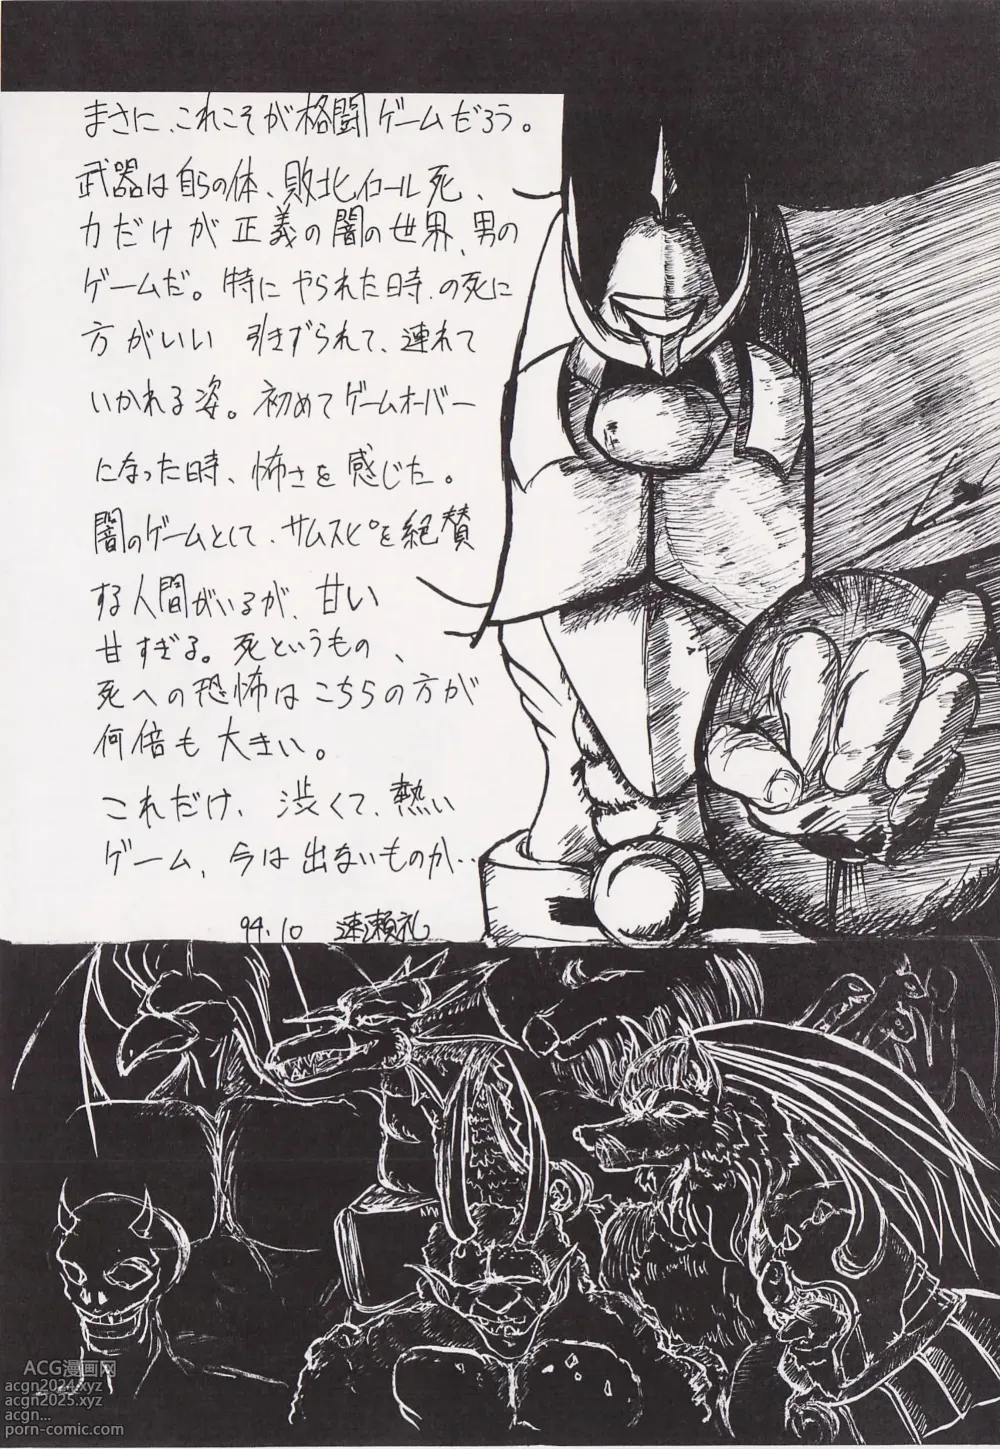 まさに、これこそが格闘ゲームだろう。
武器は自らの体、敗北イコール死、
力だけが正義の闇の世界、男の
ゲームだ。特にやられた時の死に
方がいい 引きずられて、連れて
いかれる姿。初めてゲームオーバー
になった時、怖さを感じた。
闇のゲームとして、サムスピを絶賛
する人間がいるが、甘い
甘すぎる。死というもの、
死への恐怖はこちらの方が
何倍も大きい。
これだけ、渋くて、熱い
ゲーム、今は出ないものか‥
94.10 速瀬礼
ACG漫画网
acgn2024.xyz
acgn2025.xyz
acgn...
porn-comic.com